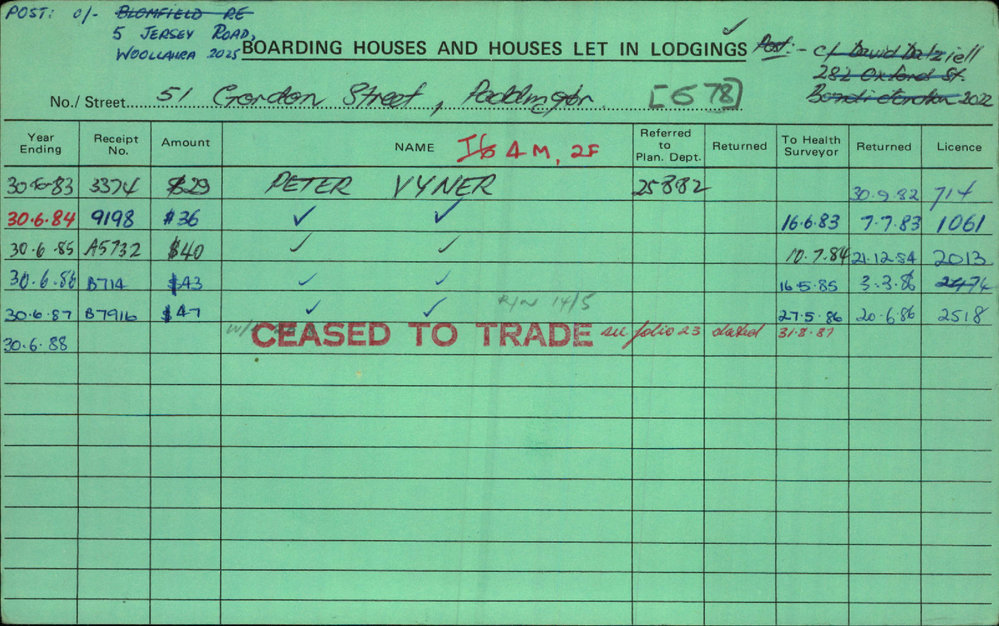 POST: c/- BLOMFIELD RE
5 JERSEY ROAD,
WOOLLAHRA 2025
BOARDING HOUSES AND HOUSES LET IN LODGINGS
Post:- c/ David Dalziell
282 Oxford St.
Bondi Junction 2022
No./Street 51 Gordon Street, Paddington. [678]
Year Ending Receipt No. Amount NAME 4M, 2F Referred to Plan. Dept. Returned To Health Surveyor Returned Licence
30-6-83 3374 $29 PETER VYNER 25882 30.9.82 714
30.6.84 9198 $36 ✓ ✓ 16.6.83 7.7.83 1061
30.6.85 A5732 $40 ✓ ✓ 10.7.84 21.12.84 2013
30.6.86 B714 $43 ✓ ✓ 16.5.85 3.3.86 2474
30.6.87 B7916 $47 ✓ ✓ R/N 14/5 27.5.86 20.6.86 2518
30.6.88 CEASED TO TRADE see folio 23 dated 31.8.87